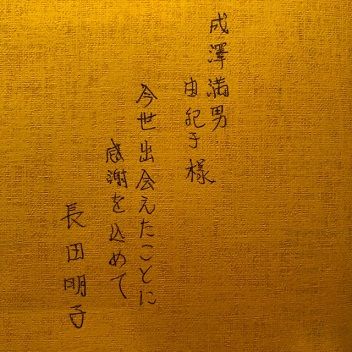 成澤満男
由紀子様
今世出会えたことに
感謝を込めて
長田明子